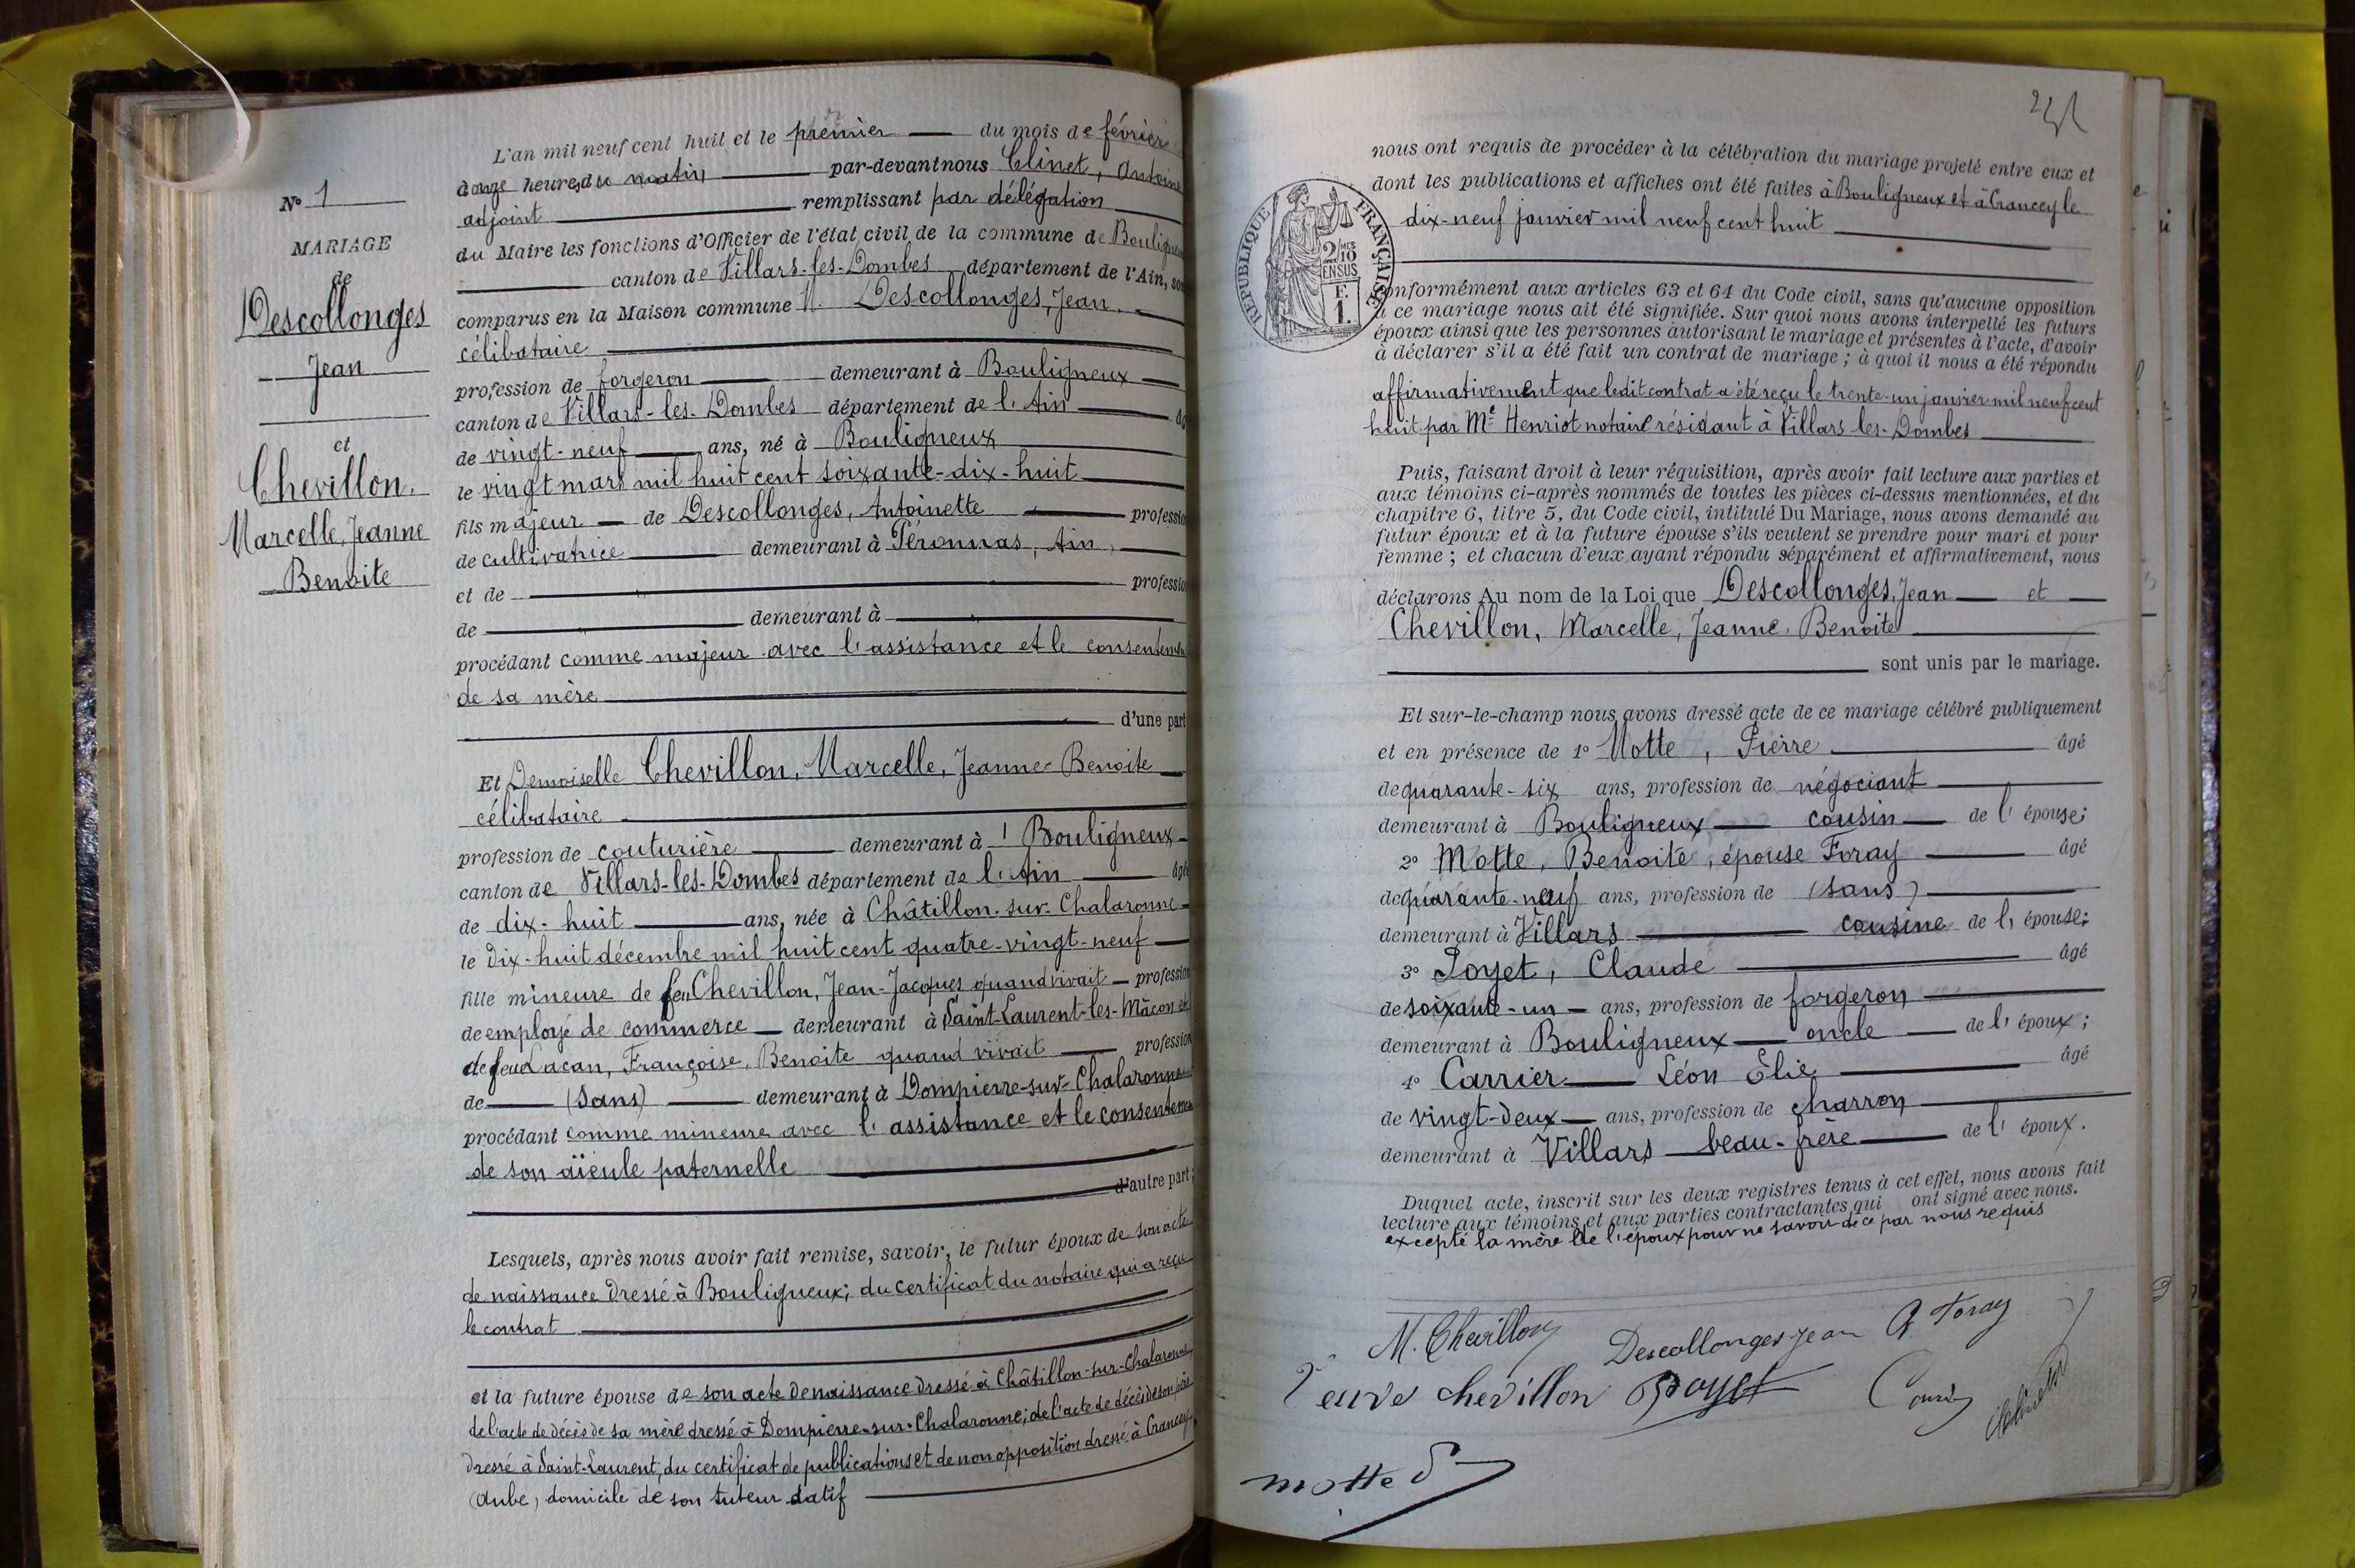 N° 1
MARIAGE
de
Descollonges
Jean
et
Chevillon,
Marcelle, Jeanne
Benoite
L'an mil neuf cent huit et le premier du mois de février
heures du matin par-devant nous Clinet, Antoine
adjoint remplissant par délégation
du Maire les fonctions d'Officier de l'état civil de la commune de Bouligneux
canton de Villars-les-Dombes département de l'Ain, sont
comparus en la Maison commune M. Descollonges, Jean,
célibataire
profession de forgeron demeurant à Bouligneux
canton de Villars-les-Dombes département de l'Ain âgé
de vingt-neuf ans, né à Bouligneux
le vingt mars mil huit cent soixante-dix-huit
fils majeur de Descollonges, Antoinette profession
de cultivatrice demeurant à Péronnas, Ain,
et de profession
de demeurant à
procédant comme majeur avec l'assistance et le consentement
de sa mère
d'une part
Et Demoiselle Chevillon, Marcelle, Jeanne Benoite
célibataire
profession de couturière demeurant à Bouligneux
canton de Villars-les-Dombes département de l'Ain âgée
de dix-huit ans, née à Châtillon-sur-Chalaronne
le dix-huit décembre mil huit cent quatre-vingt-neuf
fille mineure de feu Chevillon, Jean-Jacques quand vivait profession
de employé de commerce demeurant à Saint-Laurent-les-Mâcon et
de feue Lacan, Françoise, Benoite quand vivait profession
de (Sans) demeurant à Dompierre-sur-Chalaronne
procédant comme mineure avec l'assistance et le consentement
de son aïeule paternelle
d'autre part;
Lesquels, après nous avoir fait remise, savoir, le futur époux de son acte
de naissance dressé à Bouligneux; du certificat du notaire qui a reçu
le contrat
et la future épouse de son acte de naissance dressé à Châtillon-sur-Chalaronne
de l'acte de décès de sa mère dressé à Dompierre-sur-Chalaronne; de l'acte de décès de son père
dressé à Saint-Laurent, du certificat de publications et de non opposition dressé à Crancey
(Aube) domicile de son tuteur datif
nous ont requis de procéder à la célébration du mariage projeté entre eux et
dont les publications et affiches ont été faites à Bouligneux et à Crancey le
dix-neuf janvier mil neuf cent huit
RÉPUBLIQUE FRANÇAISE
2/10 MES
EN SUS
F.
1.
conformément aux articles 63 et 64 du Code civil, sans qu'aucune opposition
à ce mariage nous ait été signifiée. Sur quoi nous avons interpellé les futurs
époux ainsi que les personnes autorisant le mariage et présentes à l'acte, d'avoir
à déclarer s'il a été fait un contrat de mariage; à quoi il nous a été répondu
affirmativement que ledit contrat a été reçu le trente-un janvier mil neuf cent
huit par Me Henriot notaire résidant à Villars-les-Dombes
Puis, faisant droit à leur réquisition, après avoir fait lecture aux parties et
aux témoins ci-après nommés de toutes les pièces ci-dessus mentionnées, et du
chapitre 6, titre 5, du Code civil, intitulé Du Mariage, nous avons demandé au
futur époux et à la future épouse s'ils veulent se prendre pour mari et pour
femme; et chacun d'eux ayant répondu séparément et affirmativement, nous
déclarons Au nom de la Loi que Descollonges, Jean et
Chevillon, Marcelle, Jeanne, Benoite
sont unis par le mariage.
Et sur-le-champ nous avons dressé acte de ce mariage célébré publiquement
et en présence de 1° Motte, Pierre âgé
de quarante-six ans, profession de négociant
demeurant à Bouligneux cousin de l'épouse;
2° Motte, Benoite, épouse Foray âgé
de quarante-neuf ans, profession de (sans)
demeurant à Villars cousine de l'épouse;
3° Poyet, Claude âgé
de soixante-un ans, profession de forgeron
demeurant à Bouligneux oncle de l'époux;
4° Carrier Léon Élie âgé
de vingt-deux ans, profession de charron
demeurant à Villars beau-frère de l'époux.
Duquel acte, inscrit sur les deux registres tenus à cet effet, nous avons fait
lecture aux témoins et aux parties contractantes qui ont signé avec nous.
excepté la mère de l'époux pour ne savoir de ce par nous requis
M. Chevillon Descollonges Jean Foray
Veuve chevillon Poyet
motte